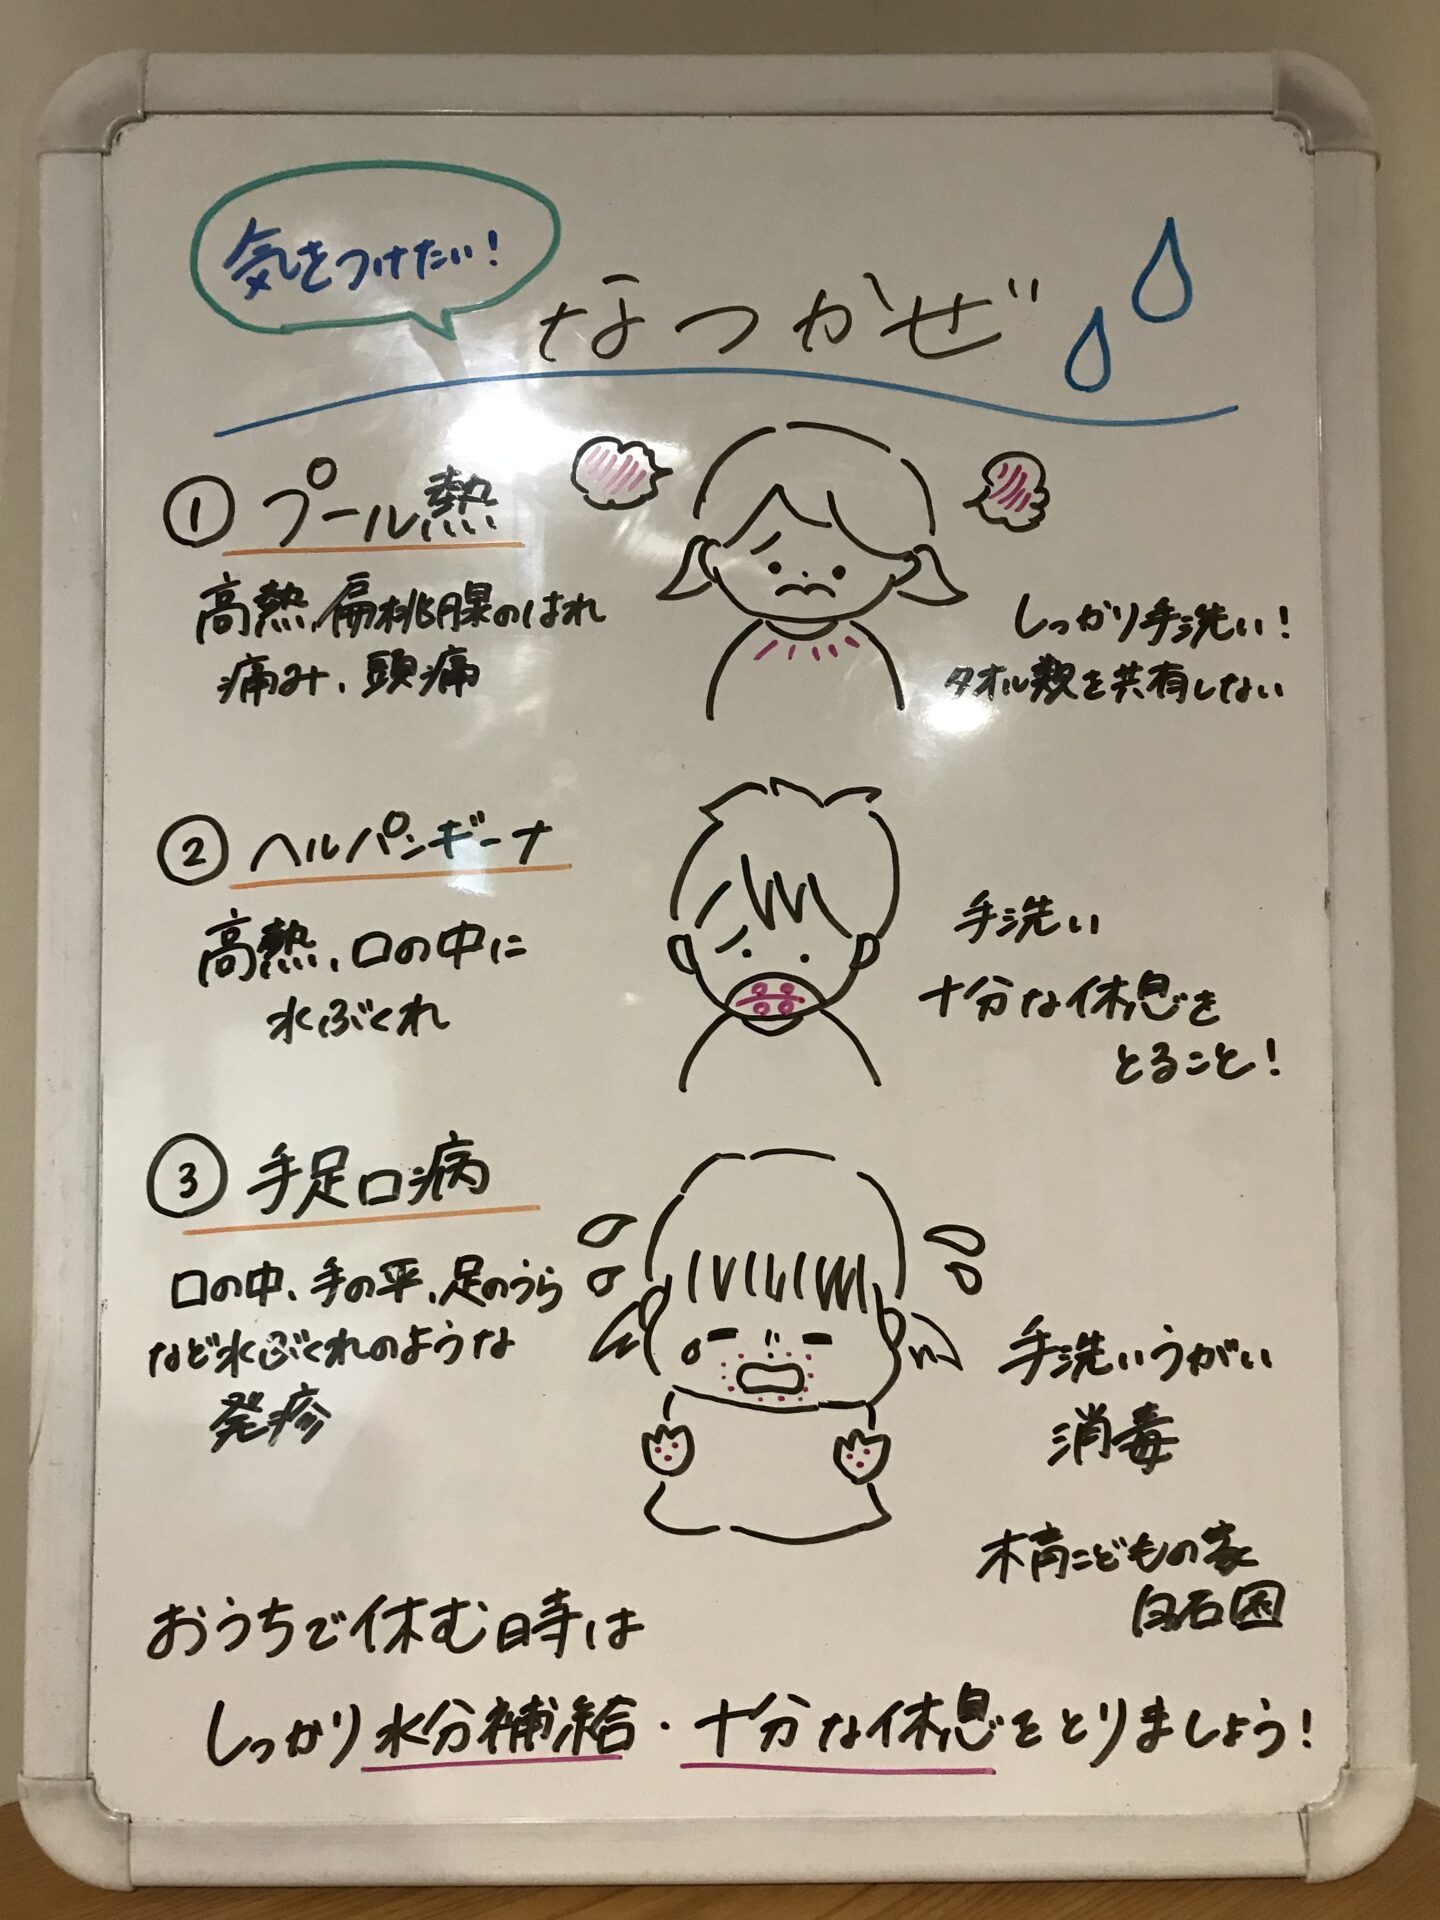 気をつけたい!
なつかぜ
① プール熱
高熱、扁桃腺のはれ
痛み、頭痛
しっかり手洗い!
タオル類を共有しない
② ヘルパンギーナ
高熱、口の中に
水ぶくれ
手洗い
十分な休息を
とること!
③ 手足口病
口の中、手の平、足のうら
など水ぶくれのような
発疹
手洗いうがい
消毒
木育こどもの家
白石園
おうちで休む時は
しっかり水分補給・十分な休息をとりましょう!